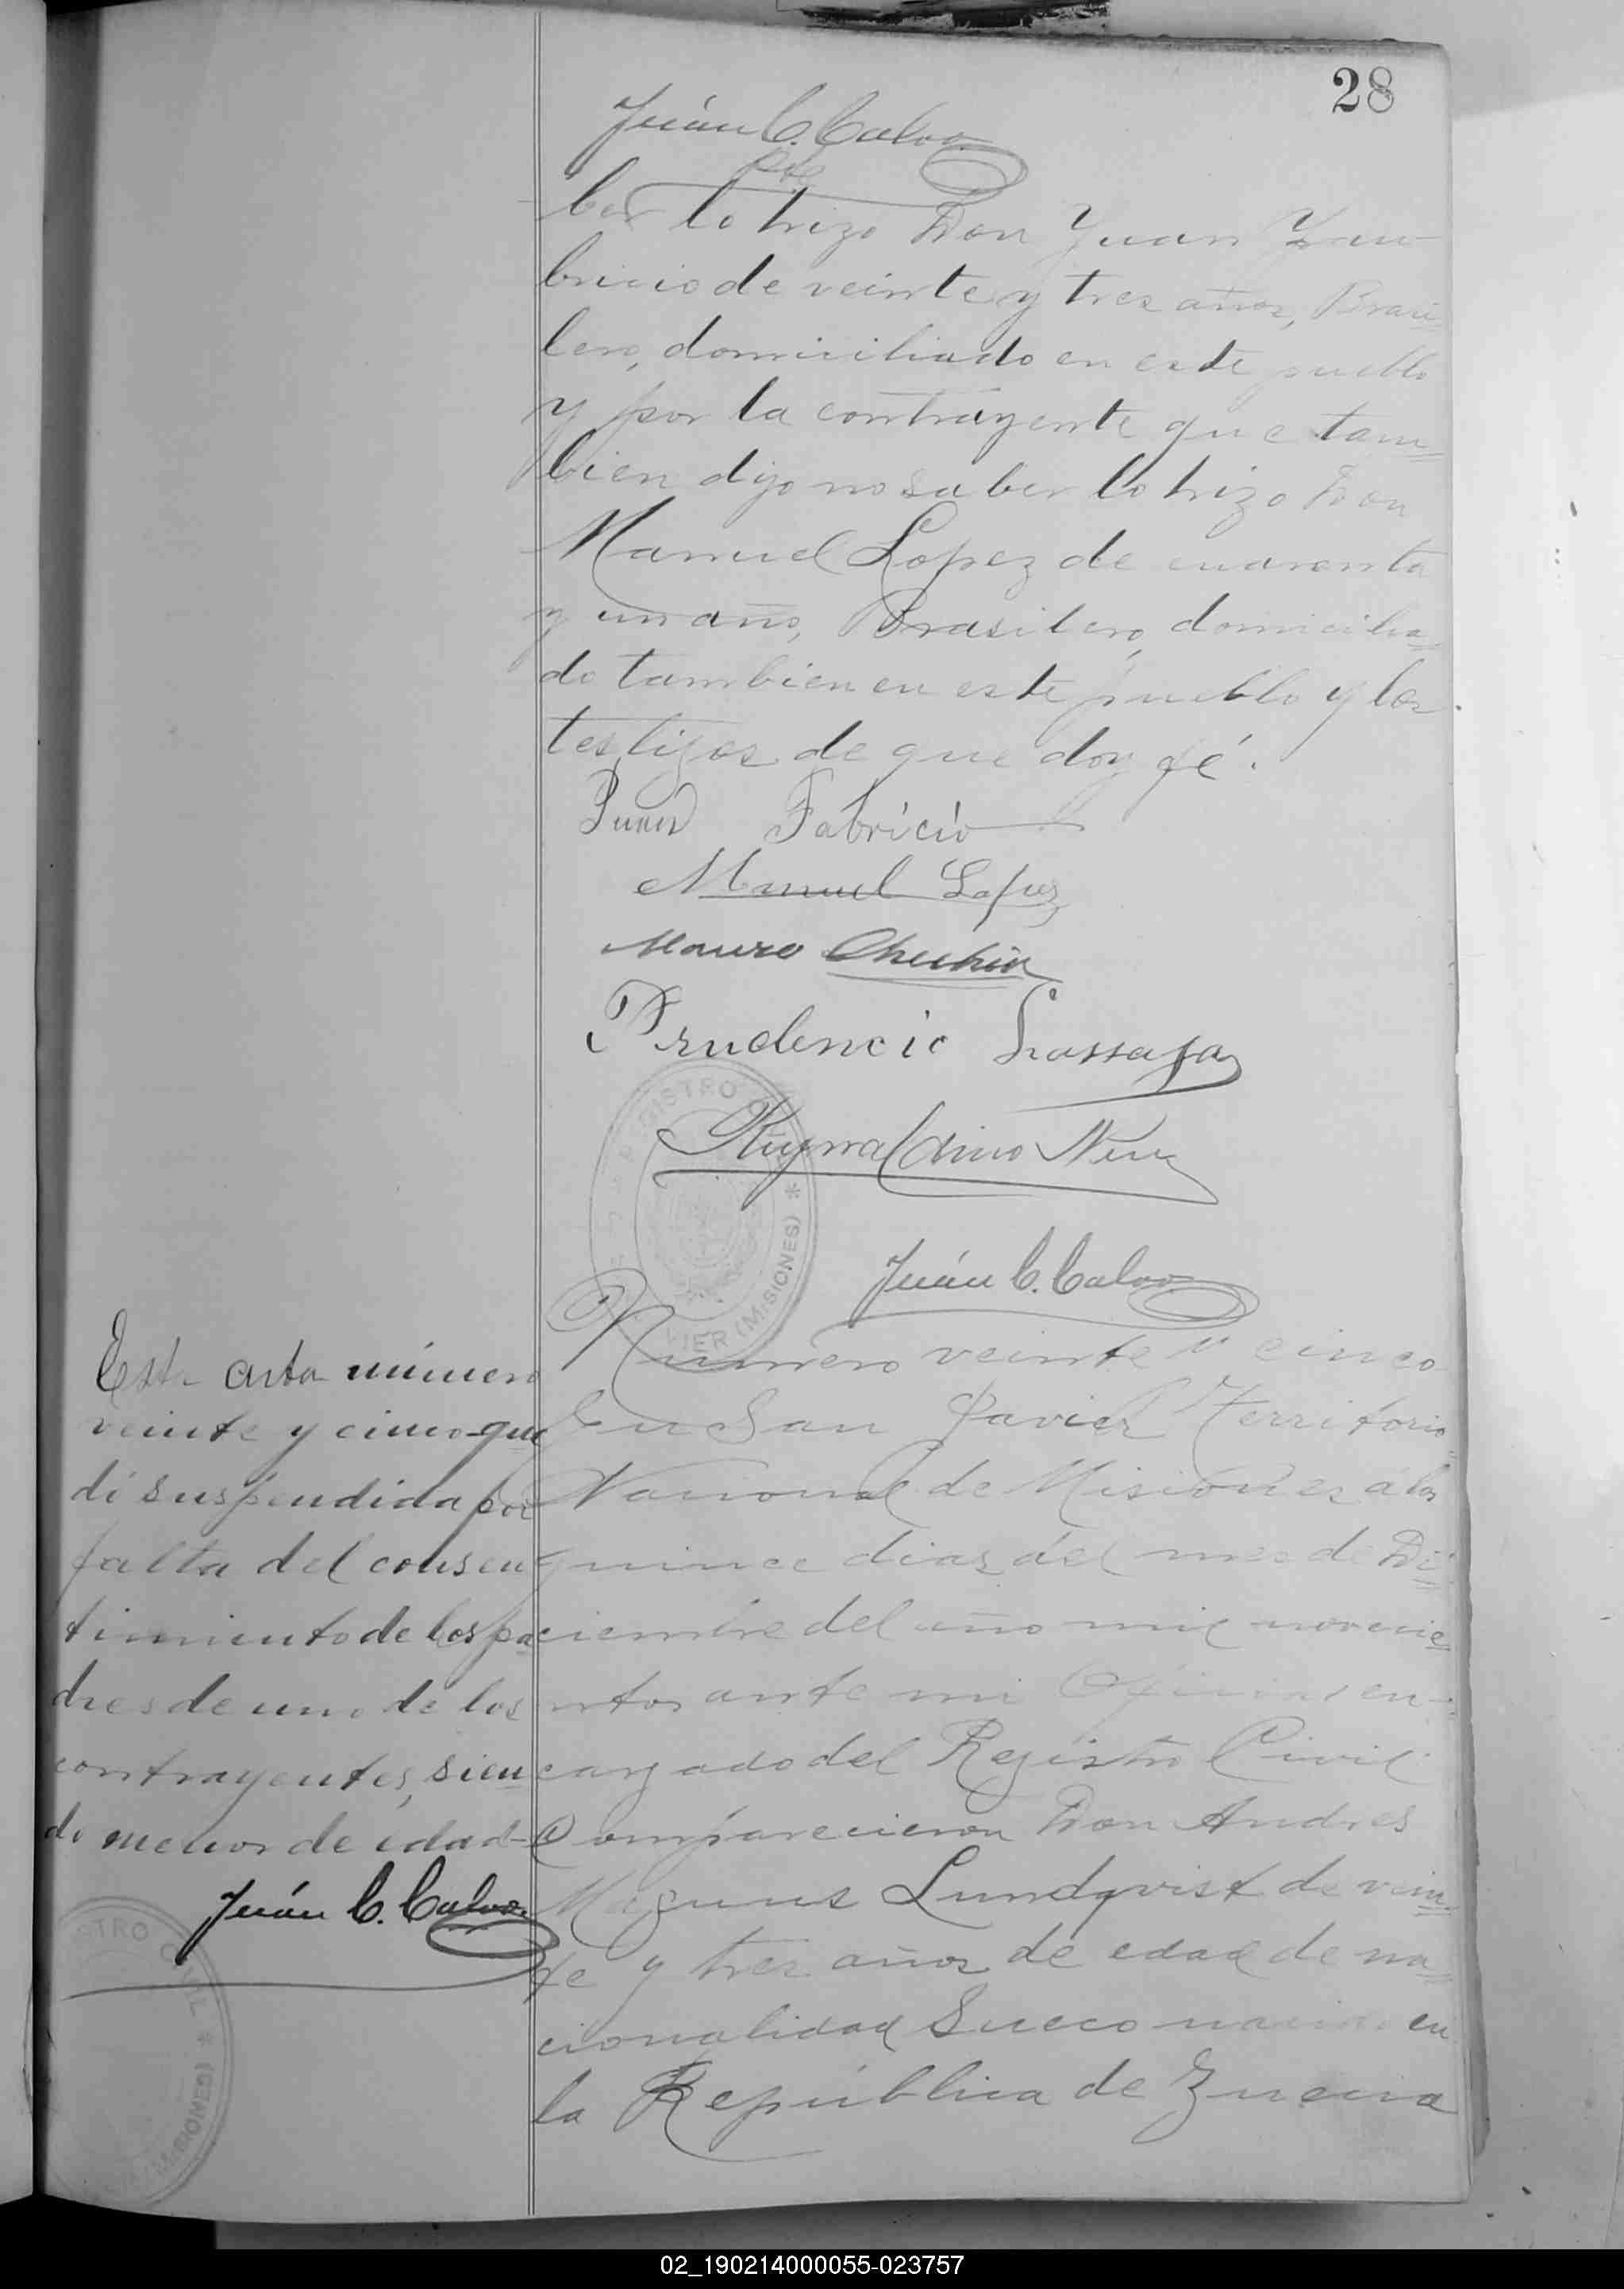 28
Juán C. Calvo
ber lo hizo Don Juan Fau
bricio de veinte y tres años, Brasi=
lero, domiciliado en este pueblo
y por la contrayente que tam=
bien dijo no saber lo hizo Don
Manuel Lopez de cuarenta
y un año, Brasilero, domicilia=
do tambien en este pueblo y los
testigos de que doy fé.
Juan Fabricio
Manuel Lopez
Mauro
Prudencio
Juán C. Calvo
REGISTRO CIVIL * (MISIONES)
Numero veinte y cinco
En San Javier Territorio
Nacional de Misiones á los
quince dias del mes de Di=
ciembre del año mil novecie=
ntos ante mi Oficial en=
cargado del Registro Civil
Comparecieron Don Andres
Magnus Lundqvist de vein=
te y tres años de edad de na=
cionalidad Sueco nacido en
la República de Zuecia
Esta acta número
veinte y cinco que
dó suspendida por
falta del consen
timiento de los pa
dres de uno de los
contrayentes, sien
do menor de edad-
Juán C. Calvo
REGISTRO CIVIL * (MISIONES)
02_190214000055-023757